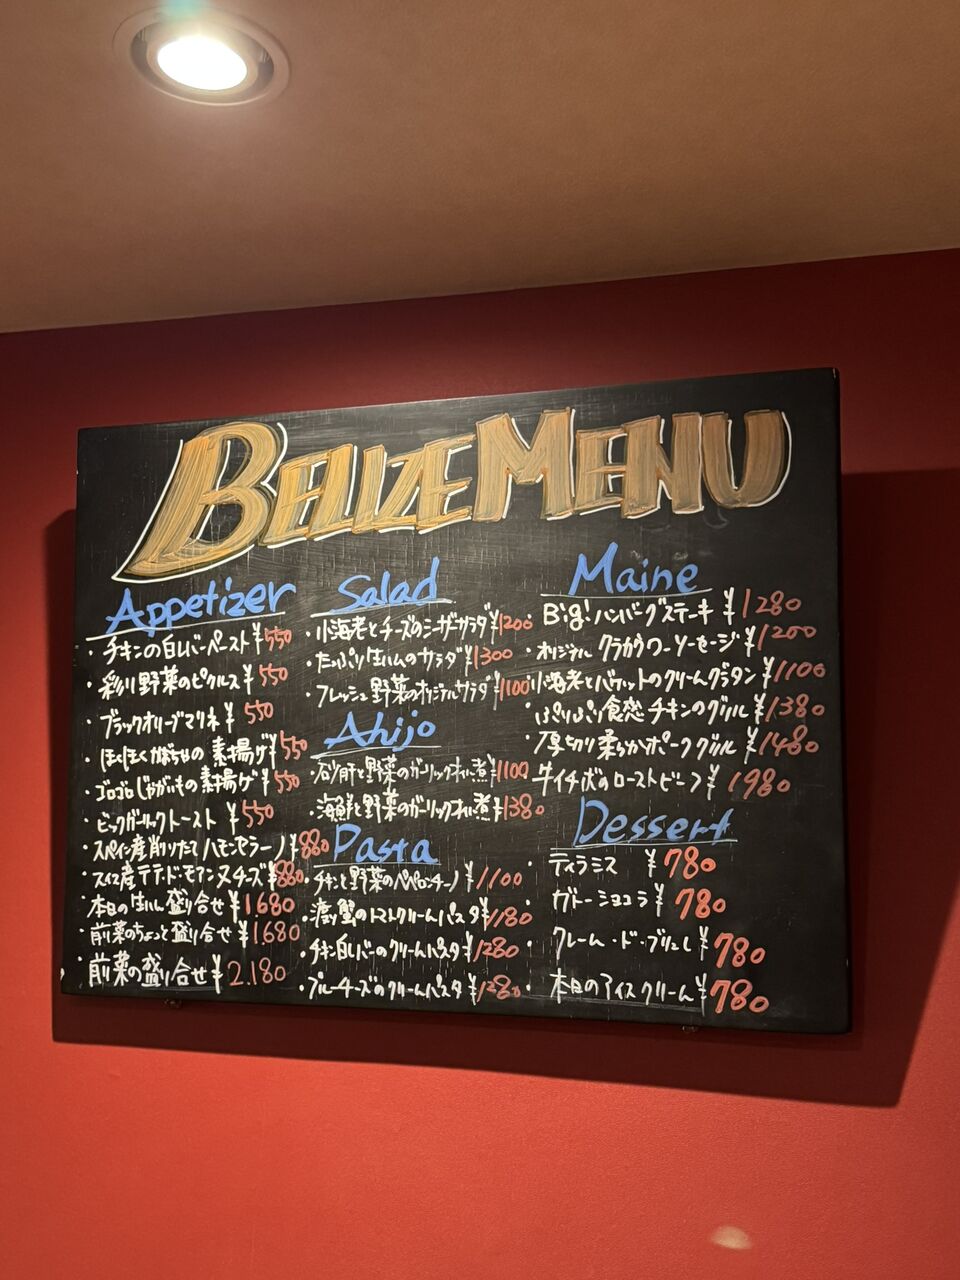 BELIZE MENU
Appetizer
・チキンの白レバーペースト ¥550
・彩り野菜のピクルス ¥550
・ブラックオリーブマリネ ¥550
・ほくほくかぼちゃの素揚げ ¥550
・ゴロゴロじゃがいもの素揚げ ¥550
・ビックガーリックトースト ¥550
・スペイン産削りたてハモンセラーノ ¥880
・スイス産テテ・ド・モアンヌチーズ ¥880
・本日の生ハム盛り合せ ¥1680
・前菜のちょっと盛り合せ ¥1.680
・前菜の盛り合せ ¥2.180
Salad
・小海老とチーズのシーザーサラダ ¥1200
・たっぷり生ハムのサラダ ¥1300
・フレッシュ野菜のオリジナルサラダ ¥1100
Ahijo
・砂肝と野菜のガーリックオイル煮 ¥1100
・海鮮と野菜のガーリックオイル煮 ¥1380
Pasta
・チキンと野菜のペペロンチーノ ¥1100
・渡り蟹のトマトクリームパスタ ¥1180
・チキン白レバーのクリームパスタ ¥1280
・ブルーチーズのクリームパスタ ¥1280
Maine
・Big!ハンバーグステーキ ¥1280
・オリジナル クラカウワーソーセージ ¥1200
・小海老とバゲットのクリームグラタン ¥1100
・ぷりぷり食感チキンのグリル ¥1380
・厚切り柔らかポークグリル ¥1480
・牛イチボのローストビーフ ¥1980
Dessert
・ティラミス ¥780
・ガトーショコラ ¥780
・クレーム・ド・ブリュレ ¥780
・本日のアイスクリーム ¥780